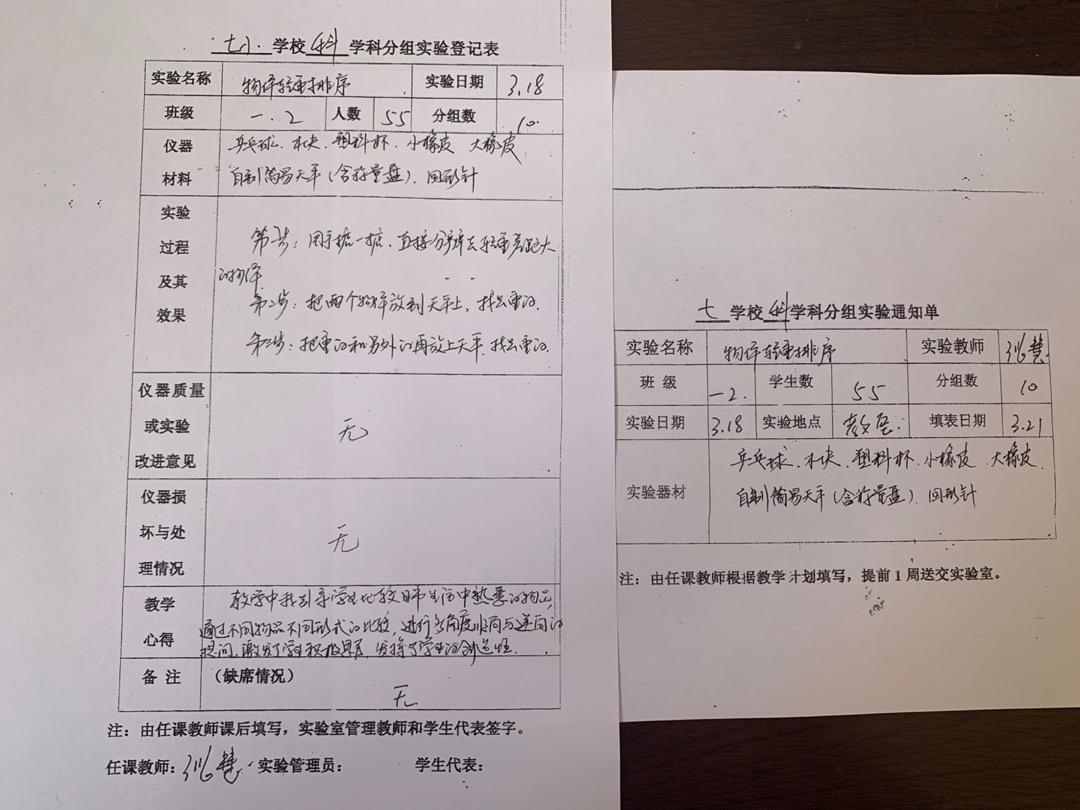 七小 学校 科 学科分组实验登记表
实验名称 物体轻重排序 实验日期 3.18
班级 一.2 人数 55 分组数 10
仪器材料 乒乓球、木块、塑料杯、小橡皮 大橡皮
自制简易天平(含称量盘)、回形针
实验过程及其效果
第一步:用手掂一掂,直接分辨去轻重差距大
的物体
第二步:把两个物体放到天平上,找出重的.
第三步:把重的和另外的再放上天平,找出重的.
仪器质量或实验改进意见 无
仪器损坏与处理情况 无
教学心得 教学中我引导学生比较日常生活中熟悉的物品,
通过不同物品不同形式的比较,进行多角度顺向与逆向的
提问,激发了学生积极思考,发挥了学生的创造性.
备注 (缺席情况)
无
注:由任课教师课后填写,实验室管理教师和学生代表签字。
任课教师: 慧 实验管理员: 学生代表:
七 学校 科 学科分组实验通知单
实验名称 物体轻重排序 实验教师 慧
班 级 一2. 学生数 55 分组数 10
实验日期 3.18 实验地点 教室. 填表日期 3.21
实验器材 乒乓球、木块、塑料杯、小橡皮、大橡皮、
自制简易天平(含称量盘)、回形针
注:由任课教师根据教学计划填写,提前1周送交实验室。